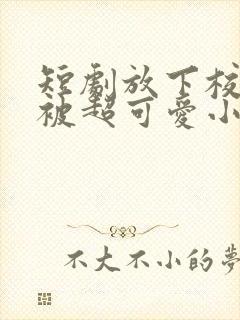 短劇放下校
被超可愛小
不大不小的夢